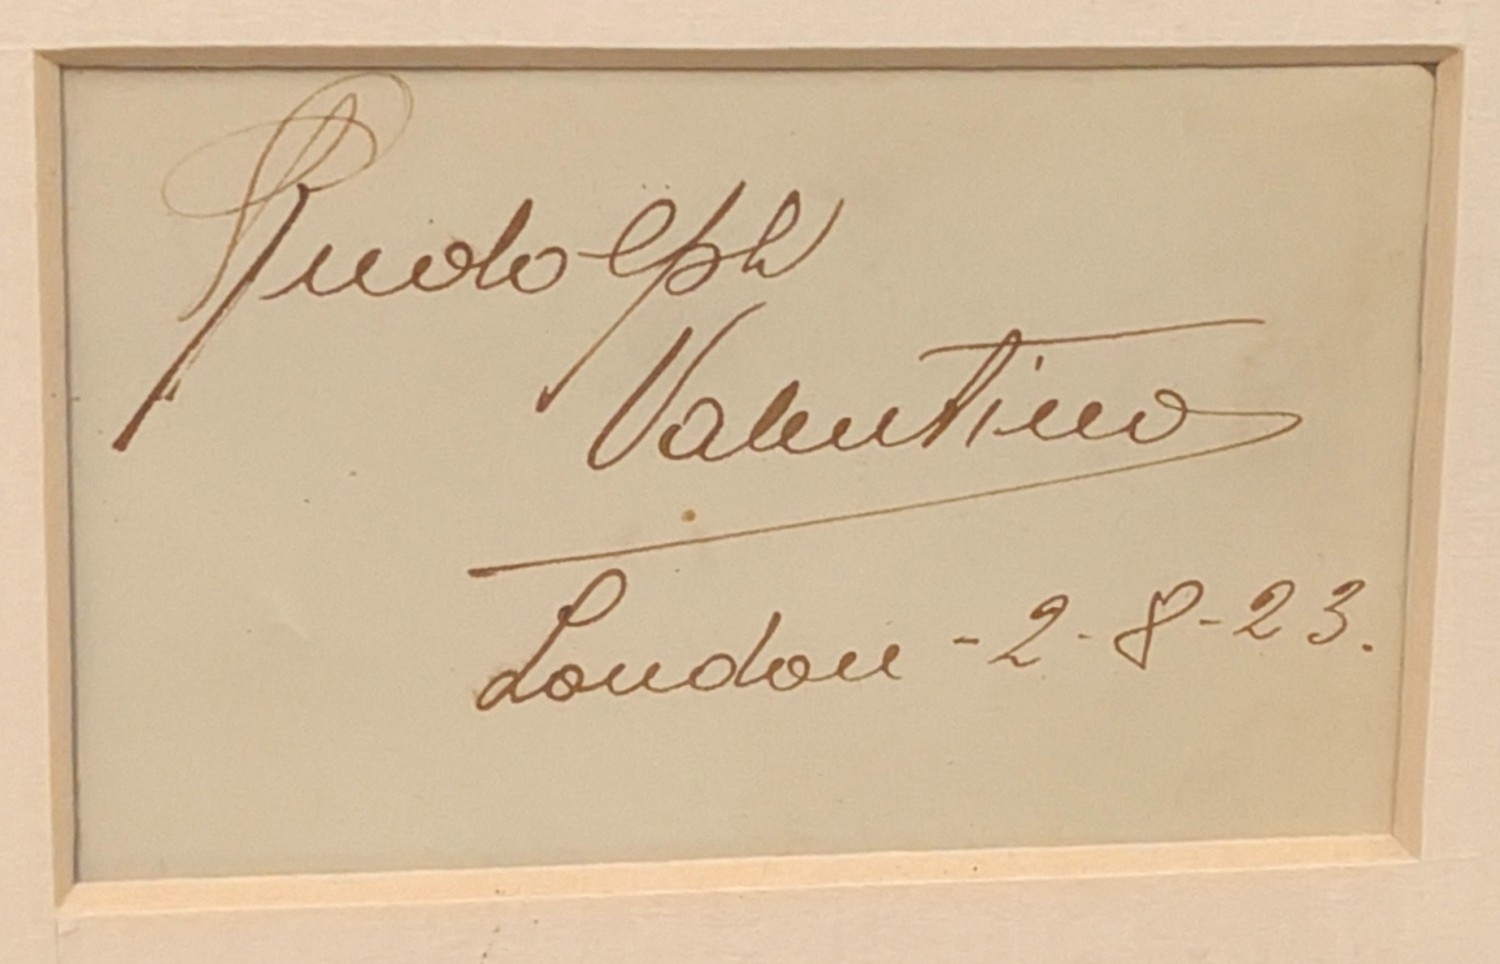 Rudolph
Valentino
London - 2 - 8 - 23.